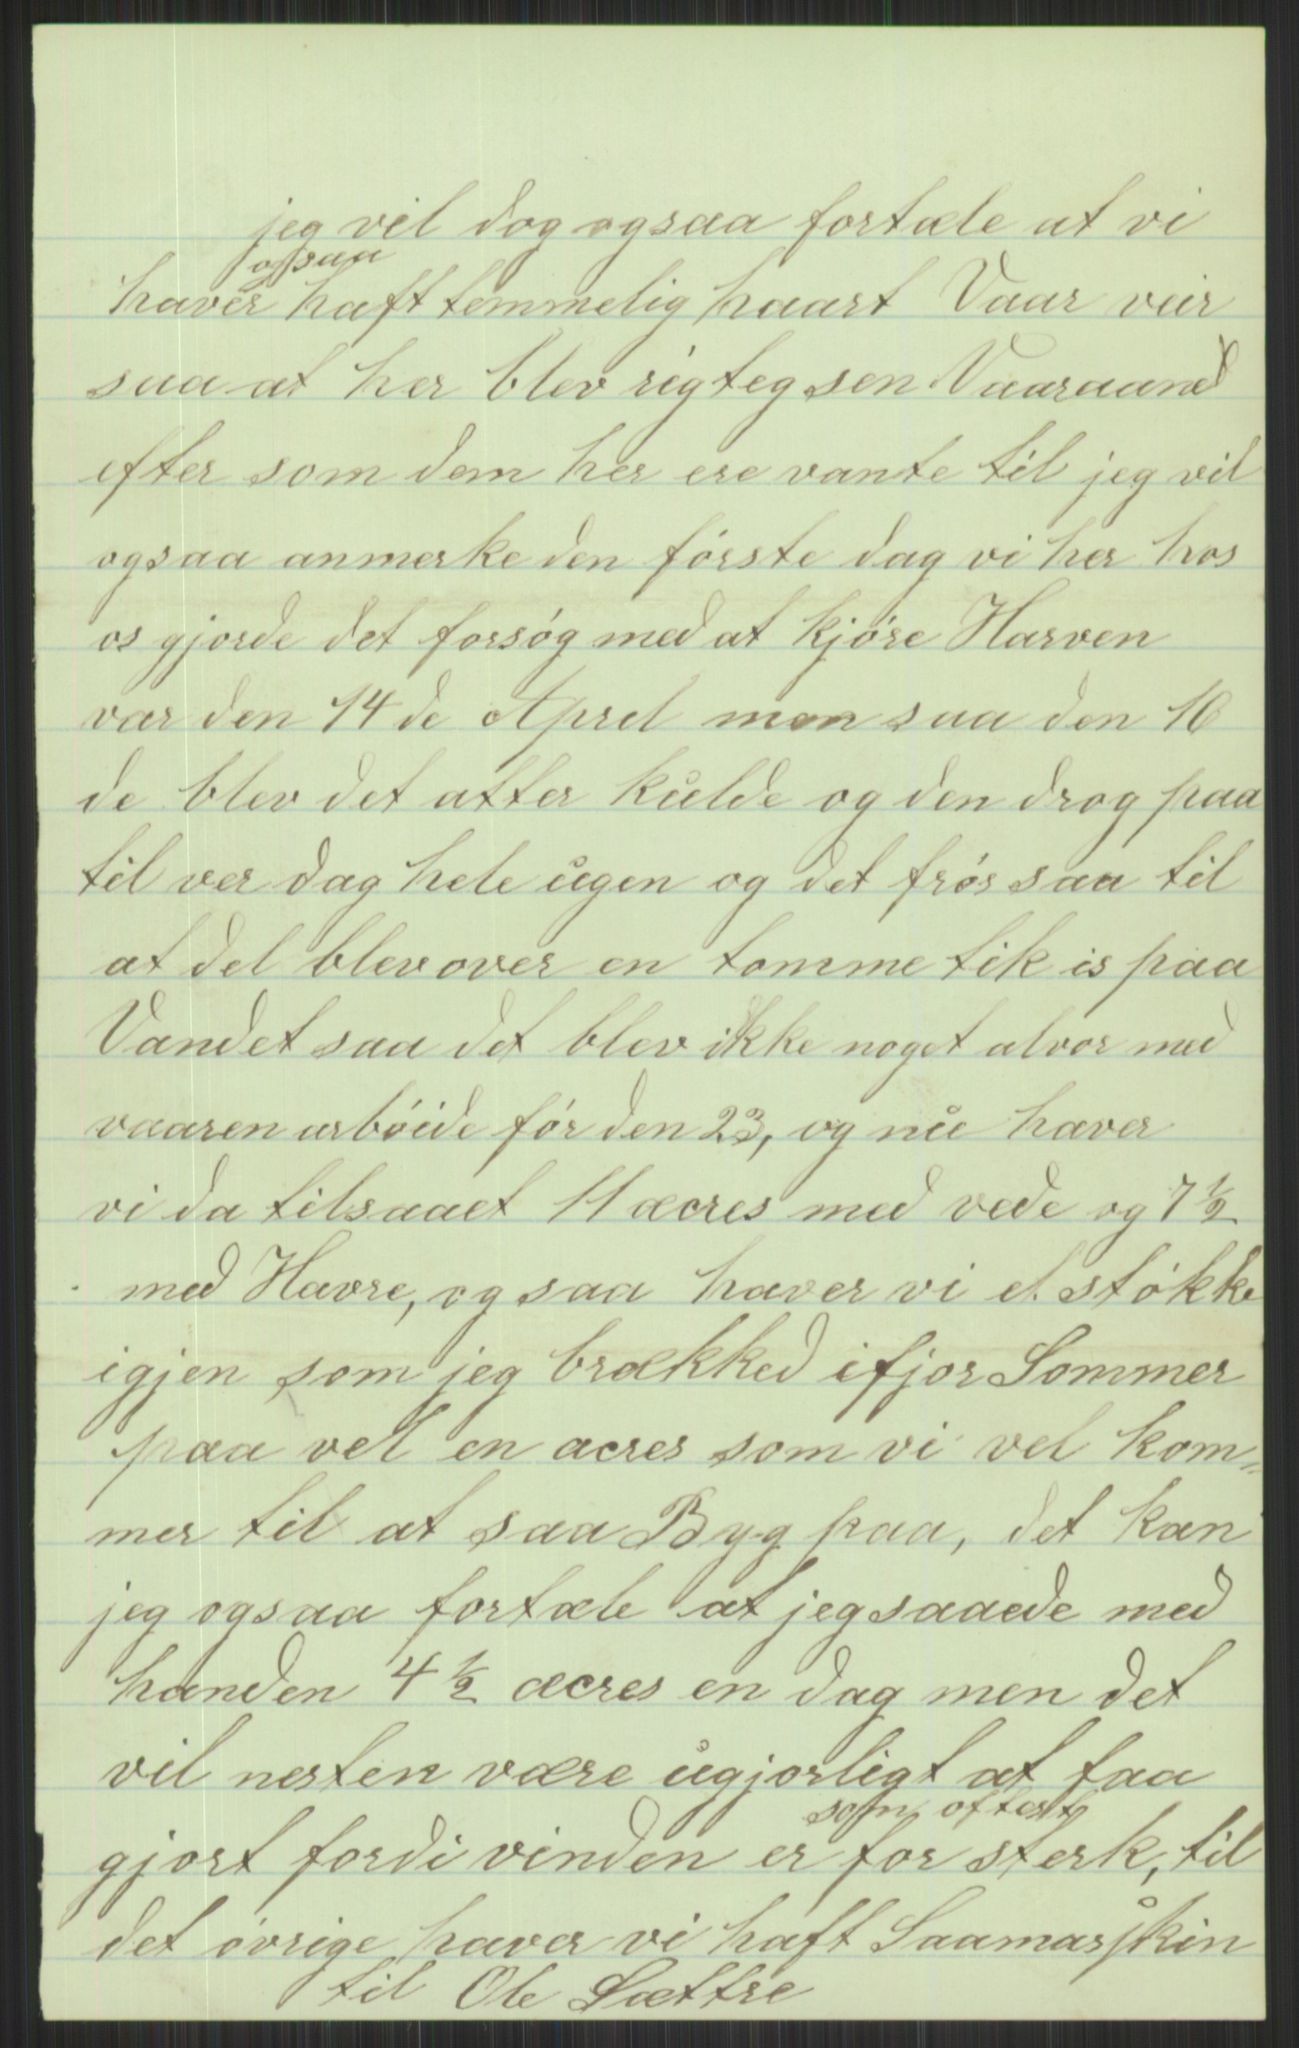 jeg vil dog ogsaa fortæle at vi
ogsaa
haver haft temmelig haart Vaar veir
saa at her blev rigteg sen Vaaraand
efter som dem her ere vante til jeg vil
ogsaa anmerke den første dag vi her hos
os gjorde det forsøg med at kjøre Harven
var den 14 de Aprel men saa den 16
de blev det atter kulde og den drog paa
til ver dag hele ugen og det frøs saa til
at del blev over en tomme tik is paa
Vandet saa det blev ikke noget alvor med
vaaren arbøide før den 23, og nu haver
vi da tilsaaet 11 æcres med vede og 7 ½
med Havre, og saa haver vi et støkke
igjen som jeg brækked ifjor Sommer
paa vel en acres som vi vel kom=
mer til at saa Byg paa, det kan
jeg ogsaa fortæle at jeg saaede med
handen 4 ½ æcres en dag men det
vil nesten være ugjorligt at faa
som oftest
gjort fordi vinden er for sterk, til
det øvrige haver vi haft Saamarskin
til Ole Sættre